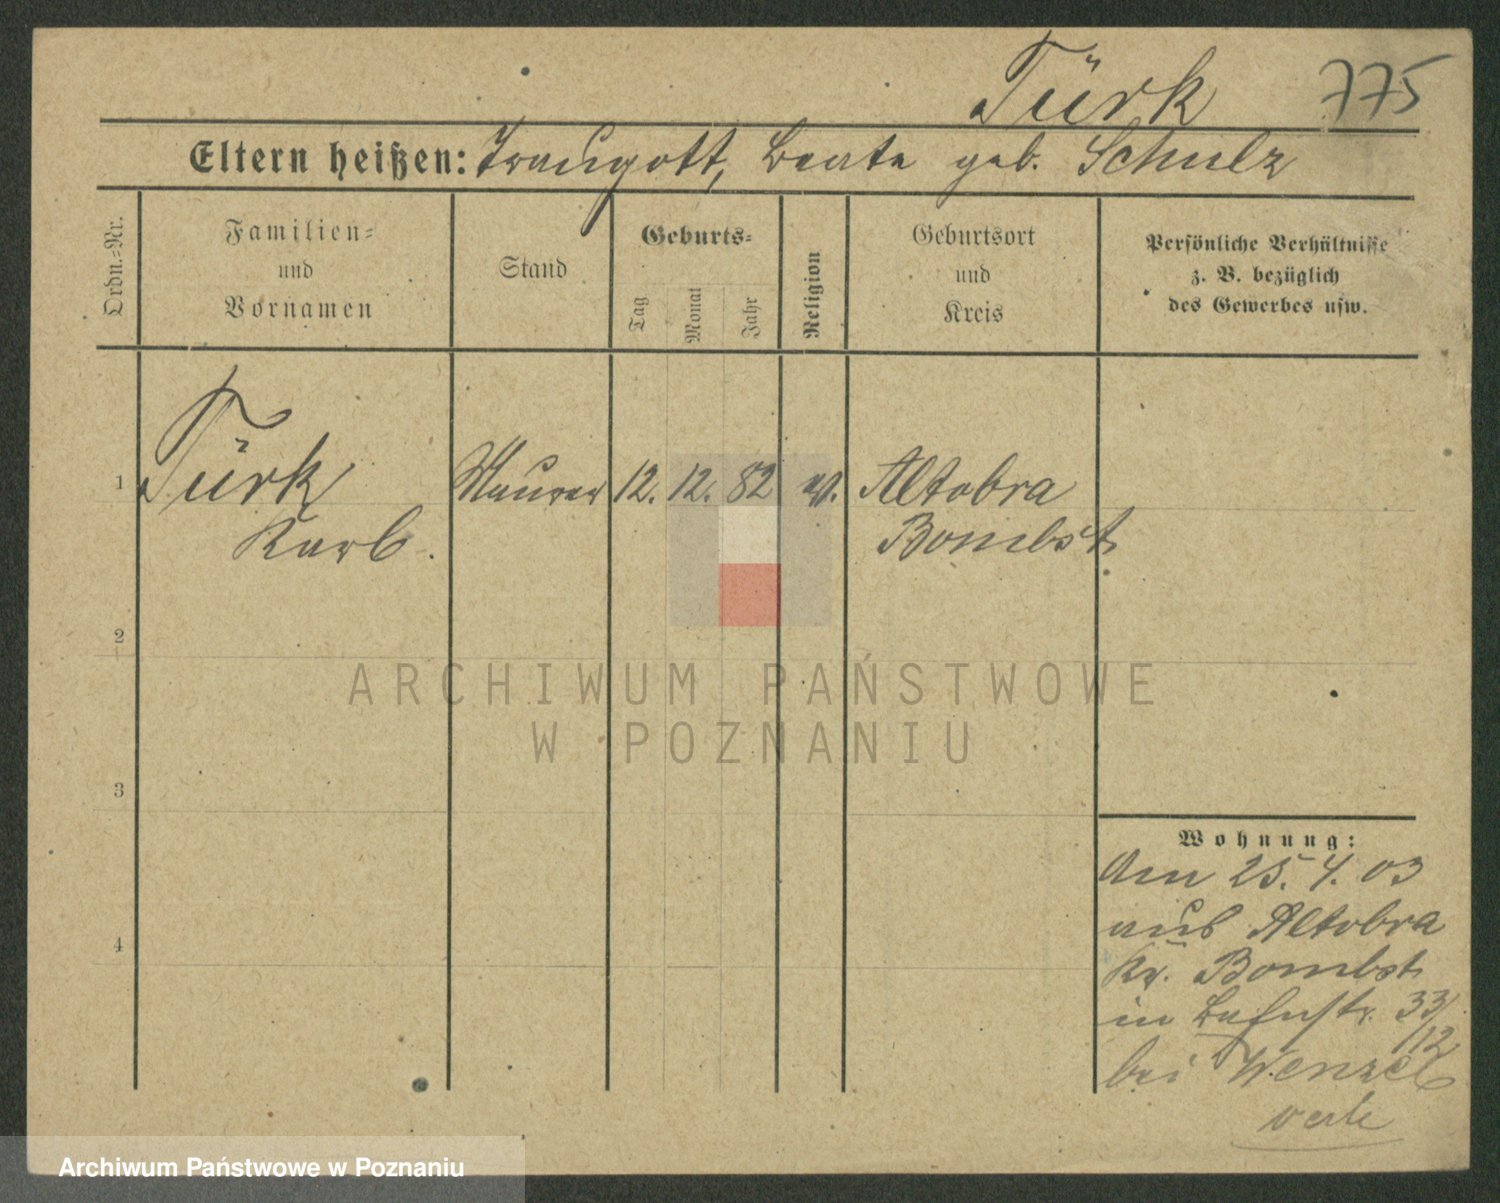 Türk 775
Eltern heißen: Traugott, Beate geb. Schulz
Ordn.-Nr.
Familien-
und
Vornamen
Stand
Geburts-
Tag
Monat
Jahr
Religion
Geburtsort
und
Kreis
Persönliche Verhältnisse
z. B. bezüglich
des Gewerbes usw.
1 Türk Maurer 12. 12. 82 ev. Altobra
Karl. Bombst
2
3
4
ARCHIWUM PAŃSTWOWE
W POZNANIU
Wohnung:
Am 25. 4. 03
aus Altobra
Kr. Bombst
in Bahnstr. 33/12
bei Wenzel
Archiwum Państwowe w Poznaniu